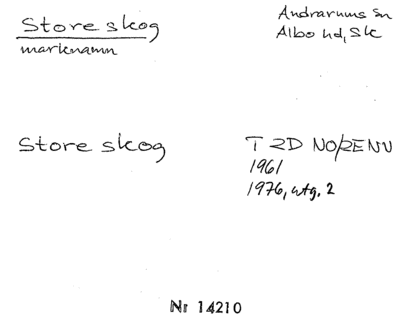 Store skog
marknamn
Andrarums sn
Albo hd, Sk
Store skog
T 2D NO/2E NV
1961
1976, utg. 2
Nr 14210